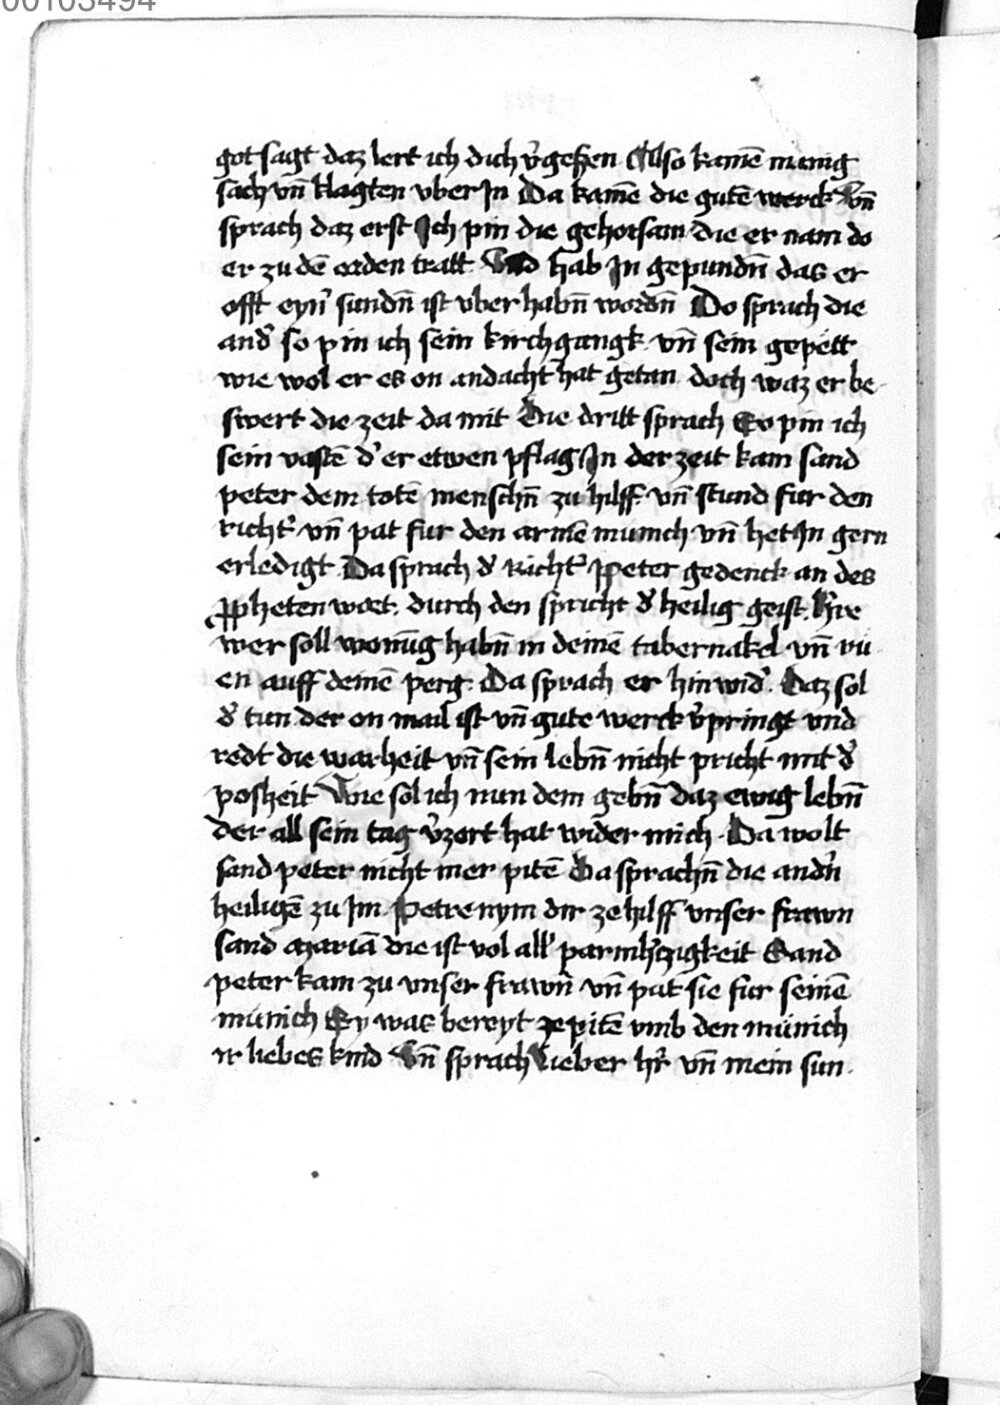 00103494
got sagt daz lert ich dich v̉gessen Also kamē manig
sach vn̄ klagten vber In Da kamē die gutē werck Vn̄
sprach daz erst Ich pin die gehorsam die er nam do
er zu dē orden tratt Vnd hab In gepundn̄ das er
offt eyn̉ sundn̄ ist vberhabn̄ wordn̄ Do sprach die
and̉ so pin ich sein kirchgangk vn̄ sein gepett
wie wol er es on andacht hat getan doch waz er be
swert die zeit da mit Die dritt sprach So pin ich
sein vastē d̉ er etwen pflag In der zeit kam sand
peter dem totē menschn̄ zu hilff vn̄ stund fur den
richt̉ vn̄ pat fur den armē munich vn̄ het In gern
erledigt Da sprach d̉ richt̉ Peter gedenck an des
ꝓpheten wort durch den spricht d̉ heilig geist H̓re
wer soll wonūg habn̄ in deinē tabernakel vn̄ ru
en auff deinē perg Da sprach er hin wid̉ Daz sol
d̉ tun der on mail ist vn̄ gute werck v̉pringt vnd
redt die warheit vn̄ sein lebn̄ nicht pricht mit d̉
posheit Wie sol ich nun dem gebn̄ daz ewig lebn̄
der all sein tag v̉zert hat wider mich Da wolt
sand peter nicht mer pitē Da sprachn̄ die andn̉
heiligē zu Im Petre nym dir ze hilff vnser frawn
sand Mariā die ist vol all̉ parmh̉zigkeit Sand
peter kam zu vnser frawn̄ vn̄ pat sie fur seinē
munich Sy was bereyt ze pitē vmb den munich
ir liebes kind Vn̄ sprach Lieber hr̉ vn̄ mein sun